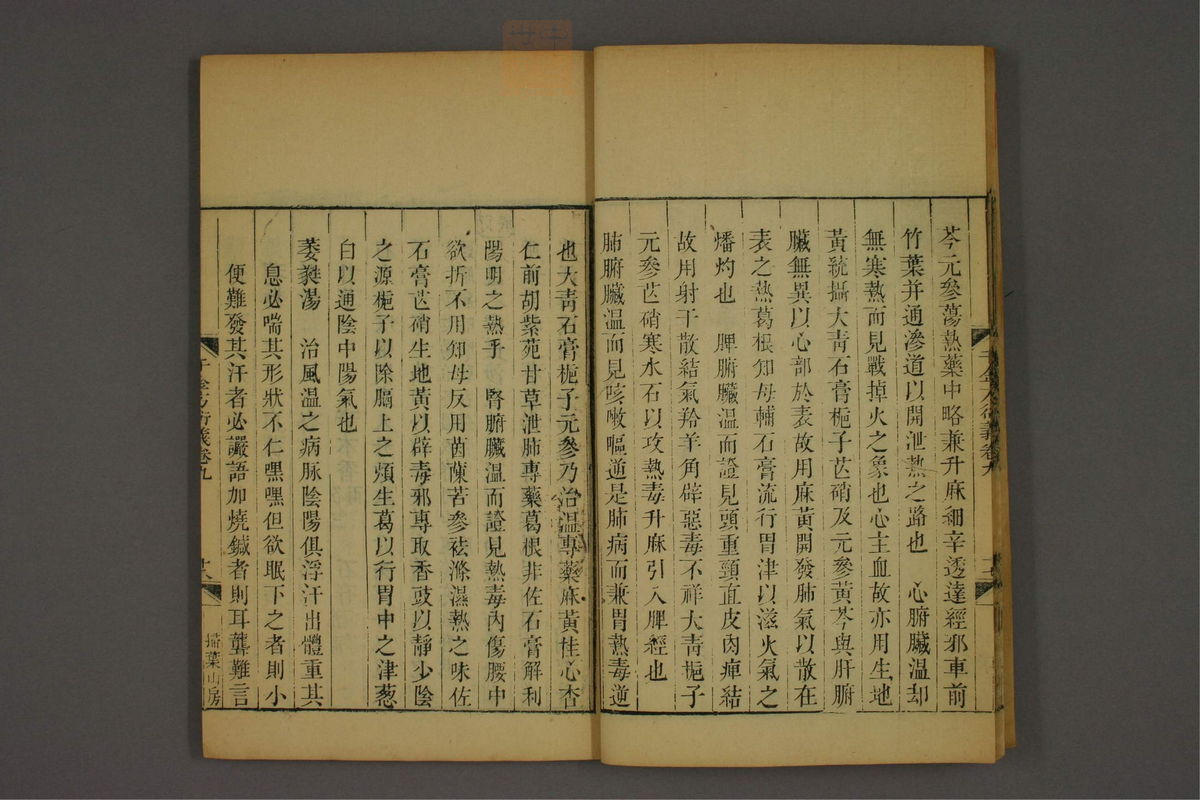 芩元參蕩熱藥中略兼升麻細辛透達經邪車前
竹葉并通滲道以開泄熱之路也　心腑臟温却
無寒熱而見戰掉火之象也心主血故亦用生地
黃統攝大青石膏梔子芒硝及元參黃芩與肝腑
臟無異以心部於表故用麻黃開發肺氣以散在
表之熱葛根知母輔石膏流行胃津以滋火氣之
燔灼也　脾腑臟温而證見頭重頸直皮肉痺結
故用射干散結氣羚羊角辟惡毒不祥大青梔子
元參芒硝寒水石以攻熱毒升麻引入脾經也
肺腑臟温而見咳嗽嘔逆是肺病而兼胃熱毒逆
也大青石膏梔子元參乃治温專藥麻黃桂心杏
仁前胡紫苑甘草泄肺專藥葛根非佐石膏解利
陽明之熱乎　腎腑臟温而證見熱毒內傷腰中
欲折不用知母反用茵蔯苦參袪滌濕熱之味佐
石膏芒硝生地黃以辟毒邪專取香豉以靜少陰
之源梔子以除膈上之煩生葛以行胃中之津葱
白以通陰中陽氣也
萎蕤湯　治風温之病脉陰陽俱浮汗出體重其
息必喘其形狀不仁嘿嘿但欲眠下之者則小
便難發其汗者必讝語加燒鍼者則耳聾難言
千金方衍義卷九
掃葉山房